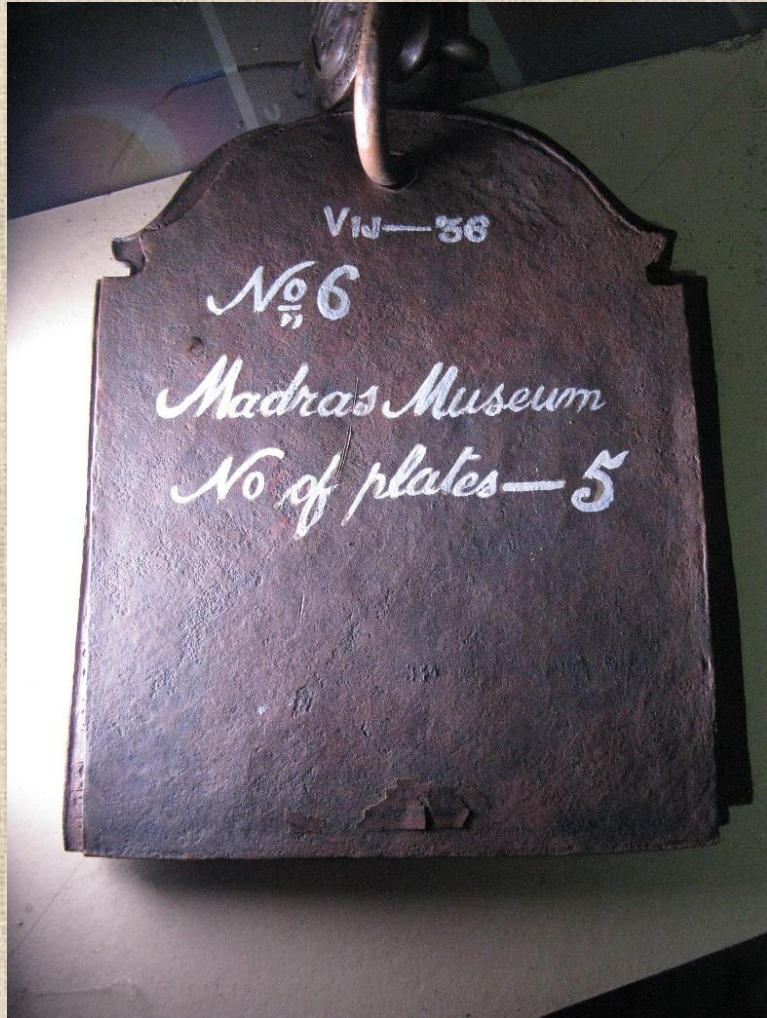 VIJ—36
No 6
Madras Museum
No of plates—5